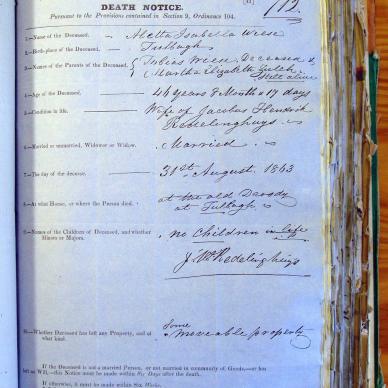 DEATH NOTICE.
Pursuant to the Provisions contained in Section 9, Ordinance 104.
1.—Name of the Deceased, - Aletta Isabella Weese
2.—Birth-place of the Deceased, - Tulbagh
3.—Names of the Parents of the Deceased, Tobias Weese Deceased &
Martha Elizabeth still alive
4.—Age of the Deceased, - 44 years 8 Months & 17 days
5.—Condition in life, - Wife of Jacobus Hendrik
Redelinghuys
6.—Married or unmarried, Widower or Widow, - Married
7.—The day of the decease, - 31st August, 1843
8.—At what House, or where the Person died, - at the old
at Tulbagh
9.—Names of the Children of Deceased, and whether
Minors or Majors, no Children in life
Redelinghuys
10.—Whether Deceased has left any Property, and of
what kind. Some
Moveable property
If the Deceased is not a married Person, or not married in community of Goods,—or has
left no Will,—this Notice must be made within Six Days after the death.
If otherwise, it must be made within Six Weeks.